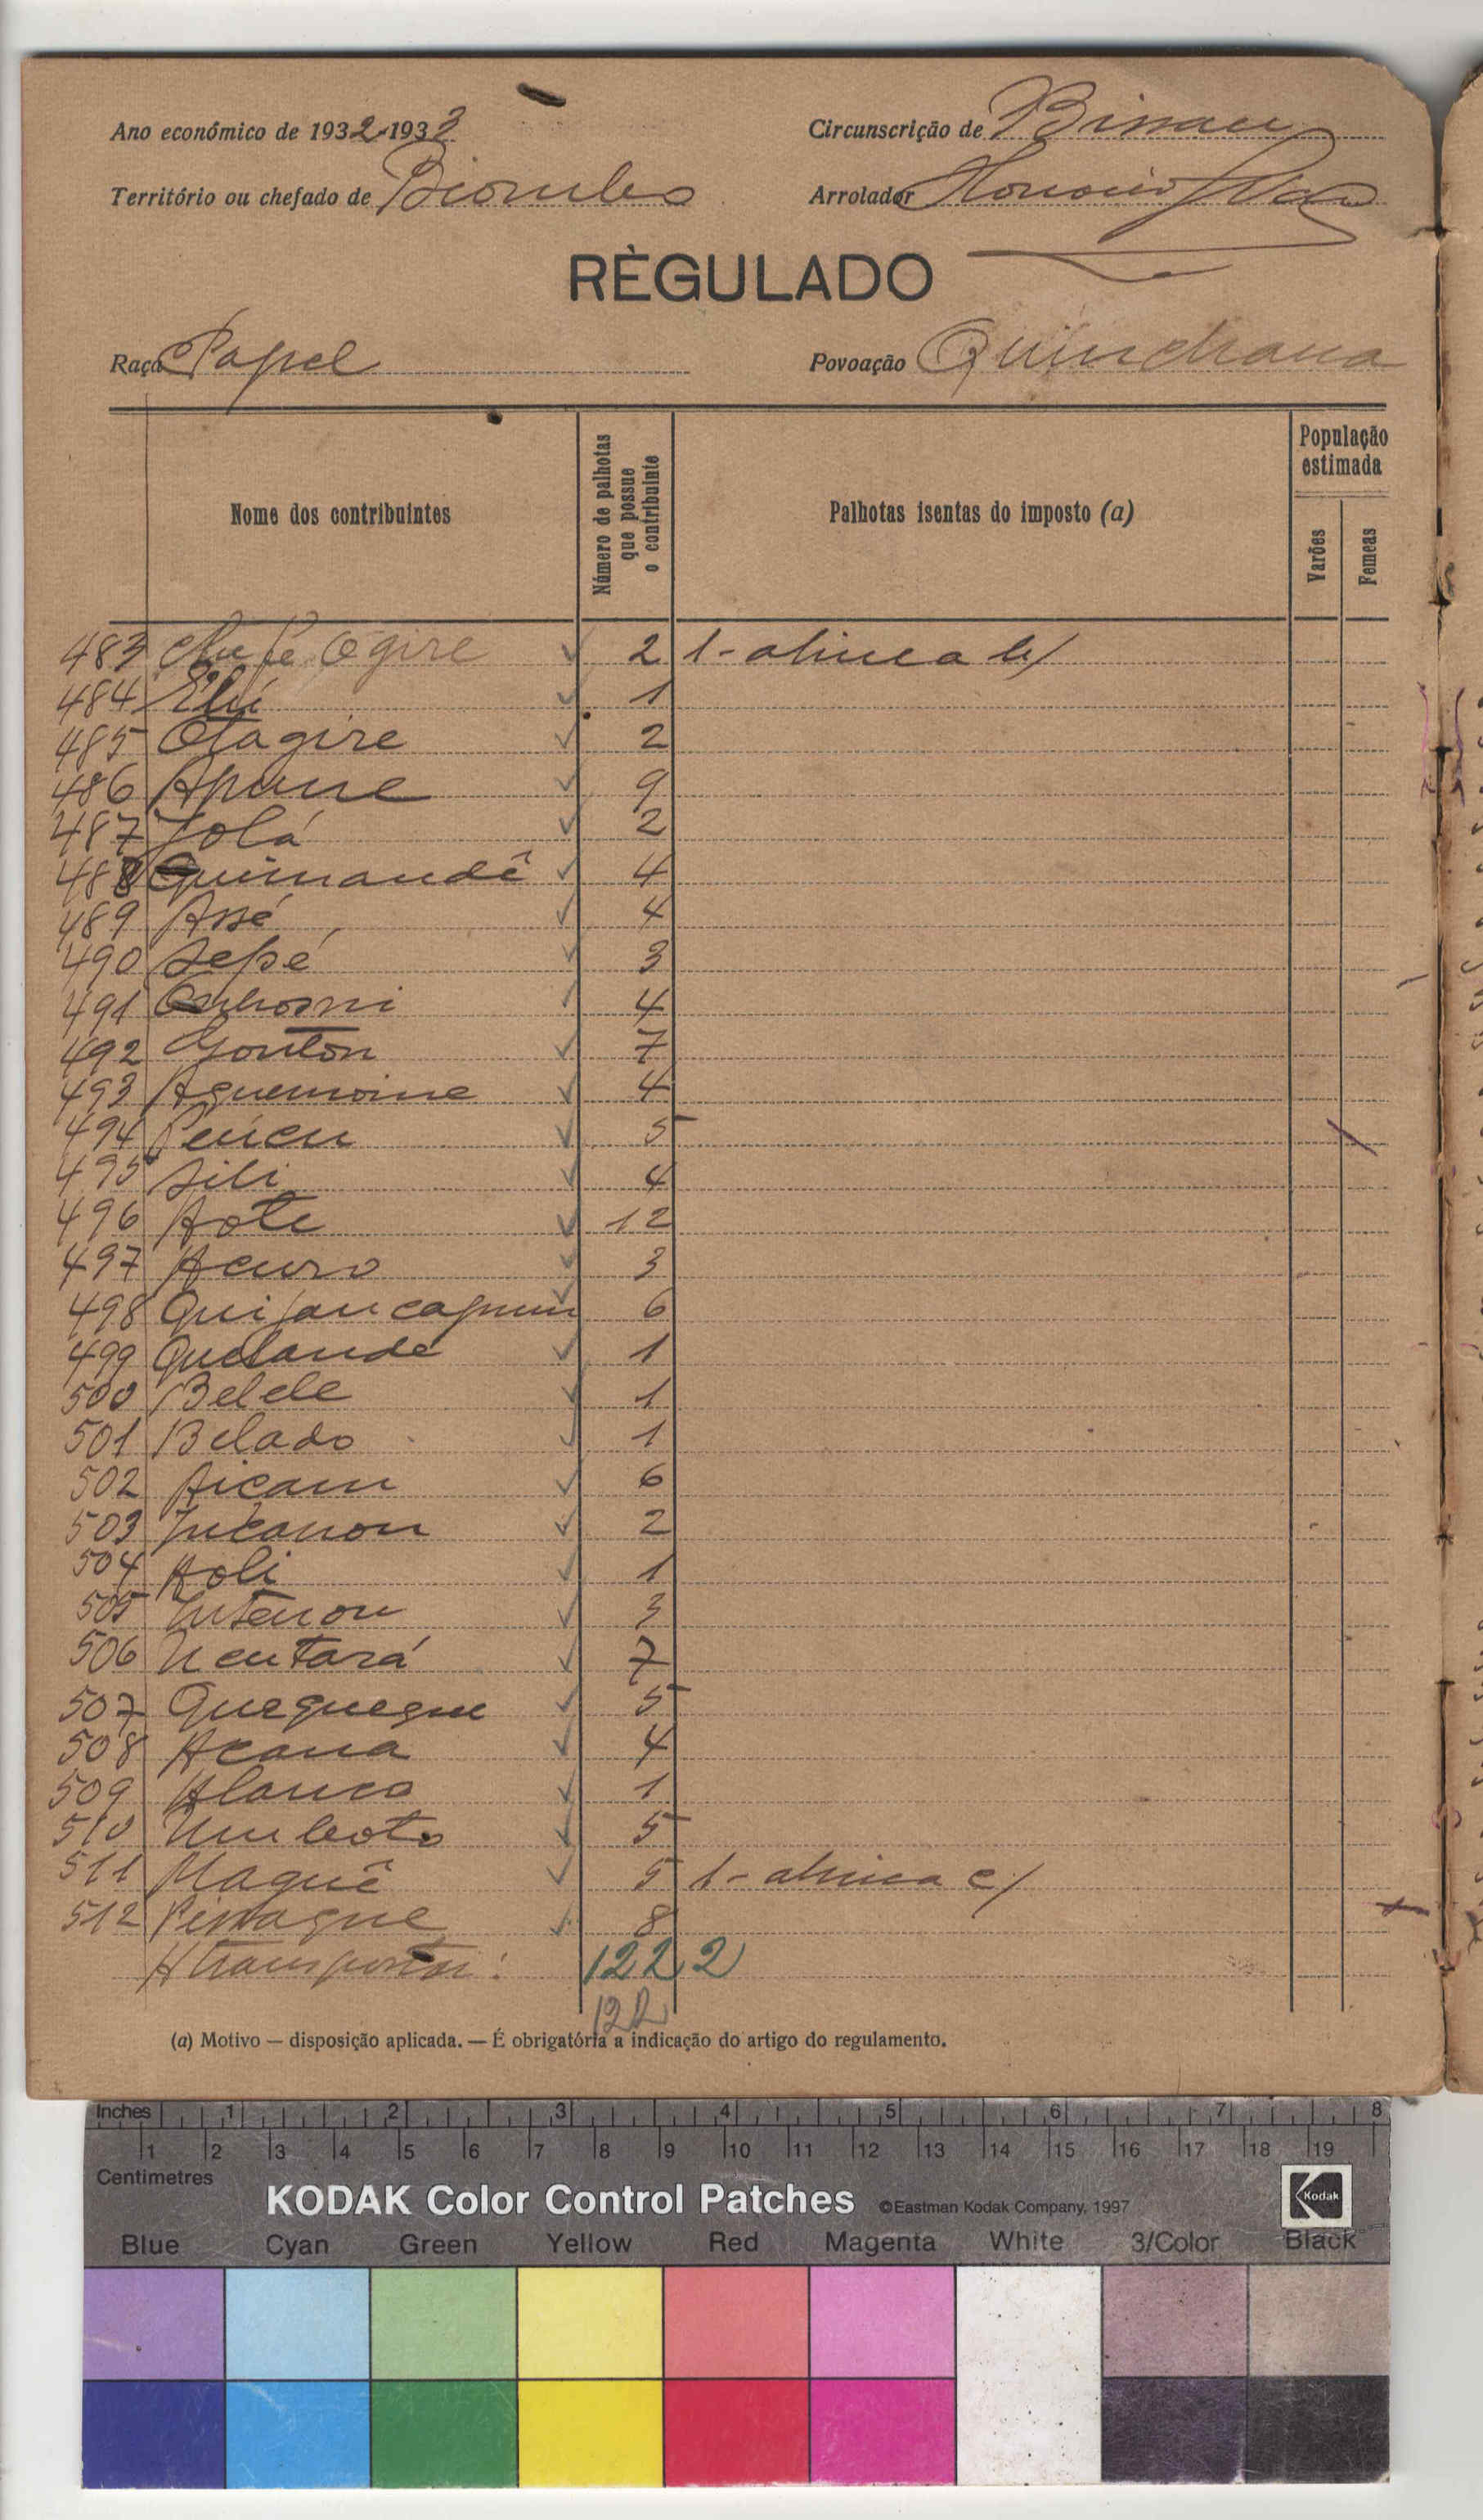 Ano económico de 1932-1933
Circunscrição de Bissau
Território ou chefado de Biombo
Arrolador
RÈGULADO
Raça Papel
Povoação Quinchana
Nome dos contribuintes
Número de palhotas que possue o contribuinte
Palhotas isentas do imposto (a)
População estimada
Varões
Femeas
483 Chefe Ogire 2 1-alinea b)
484 Elú 1
485 Otagire 2
486 Apane 9
487 Jolá 2
488 Quinandê 4
489 Assé 4
490 Sepé 3
491 4
492 Gonton 7
493 Aguemoine 4
494 5
495 Sili 4
496 Aote 12
497 Acuro 3
498 6
499 Quelande 1
500 Belele 1
501 Belado 1
502 Aiçam 6
503 2
504 Aoli 1
505 Intenon 3
506 7
507 Quequegue 5
508 Acana 4
509 Alanca 1
510 Umboto 5
511 Maquê 5 1-alinea c)
512 Pissague 8
A transportar: 122 2
122
(a) Motivo — disposição aplicada. — É obrigatória a indicação do artigo do regulamento.
Inches 1 2 3 4 5 6 7 8
1 2 3 4 5 6 7 8 9 10 11 12 13 14 15 16 17 18 19
Centimetres
KODAK Color Control Patches ©Eastman Kodak Company, 1997 Kodak
Blue Cyan Green Yellow Red Magenta White 3/Color Black